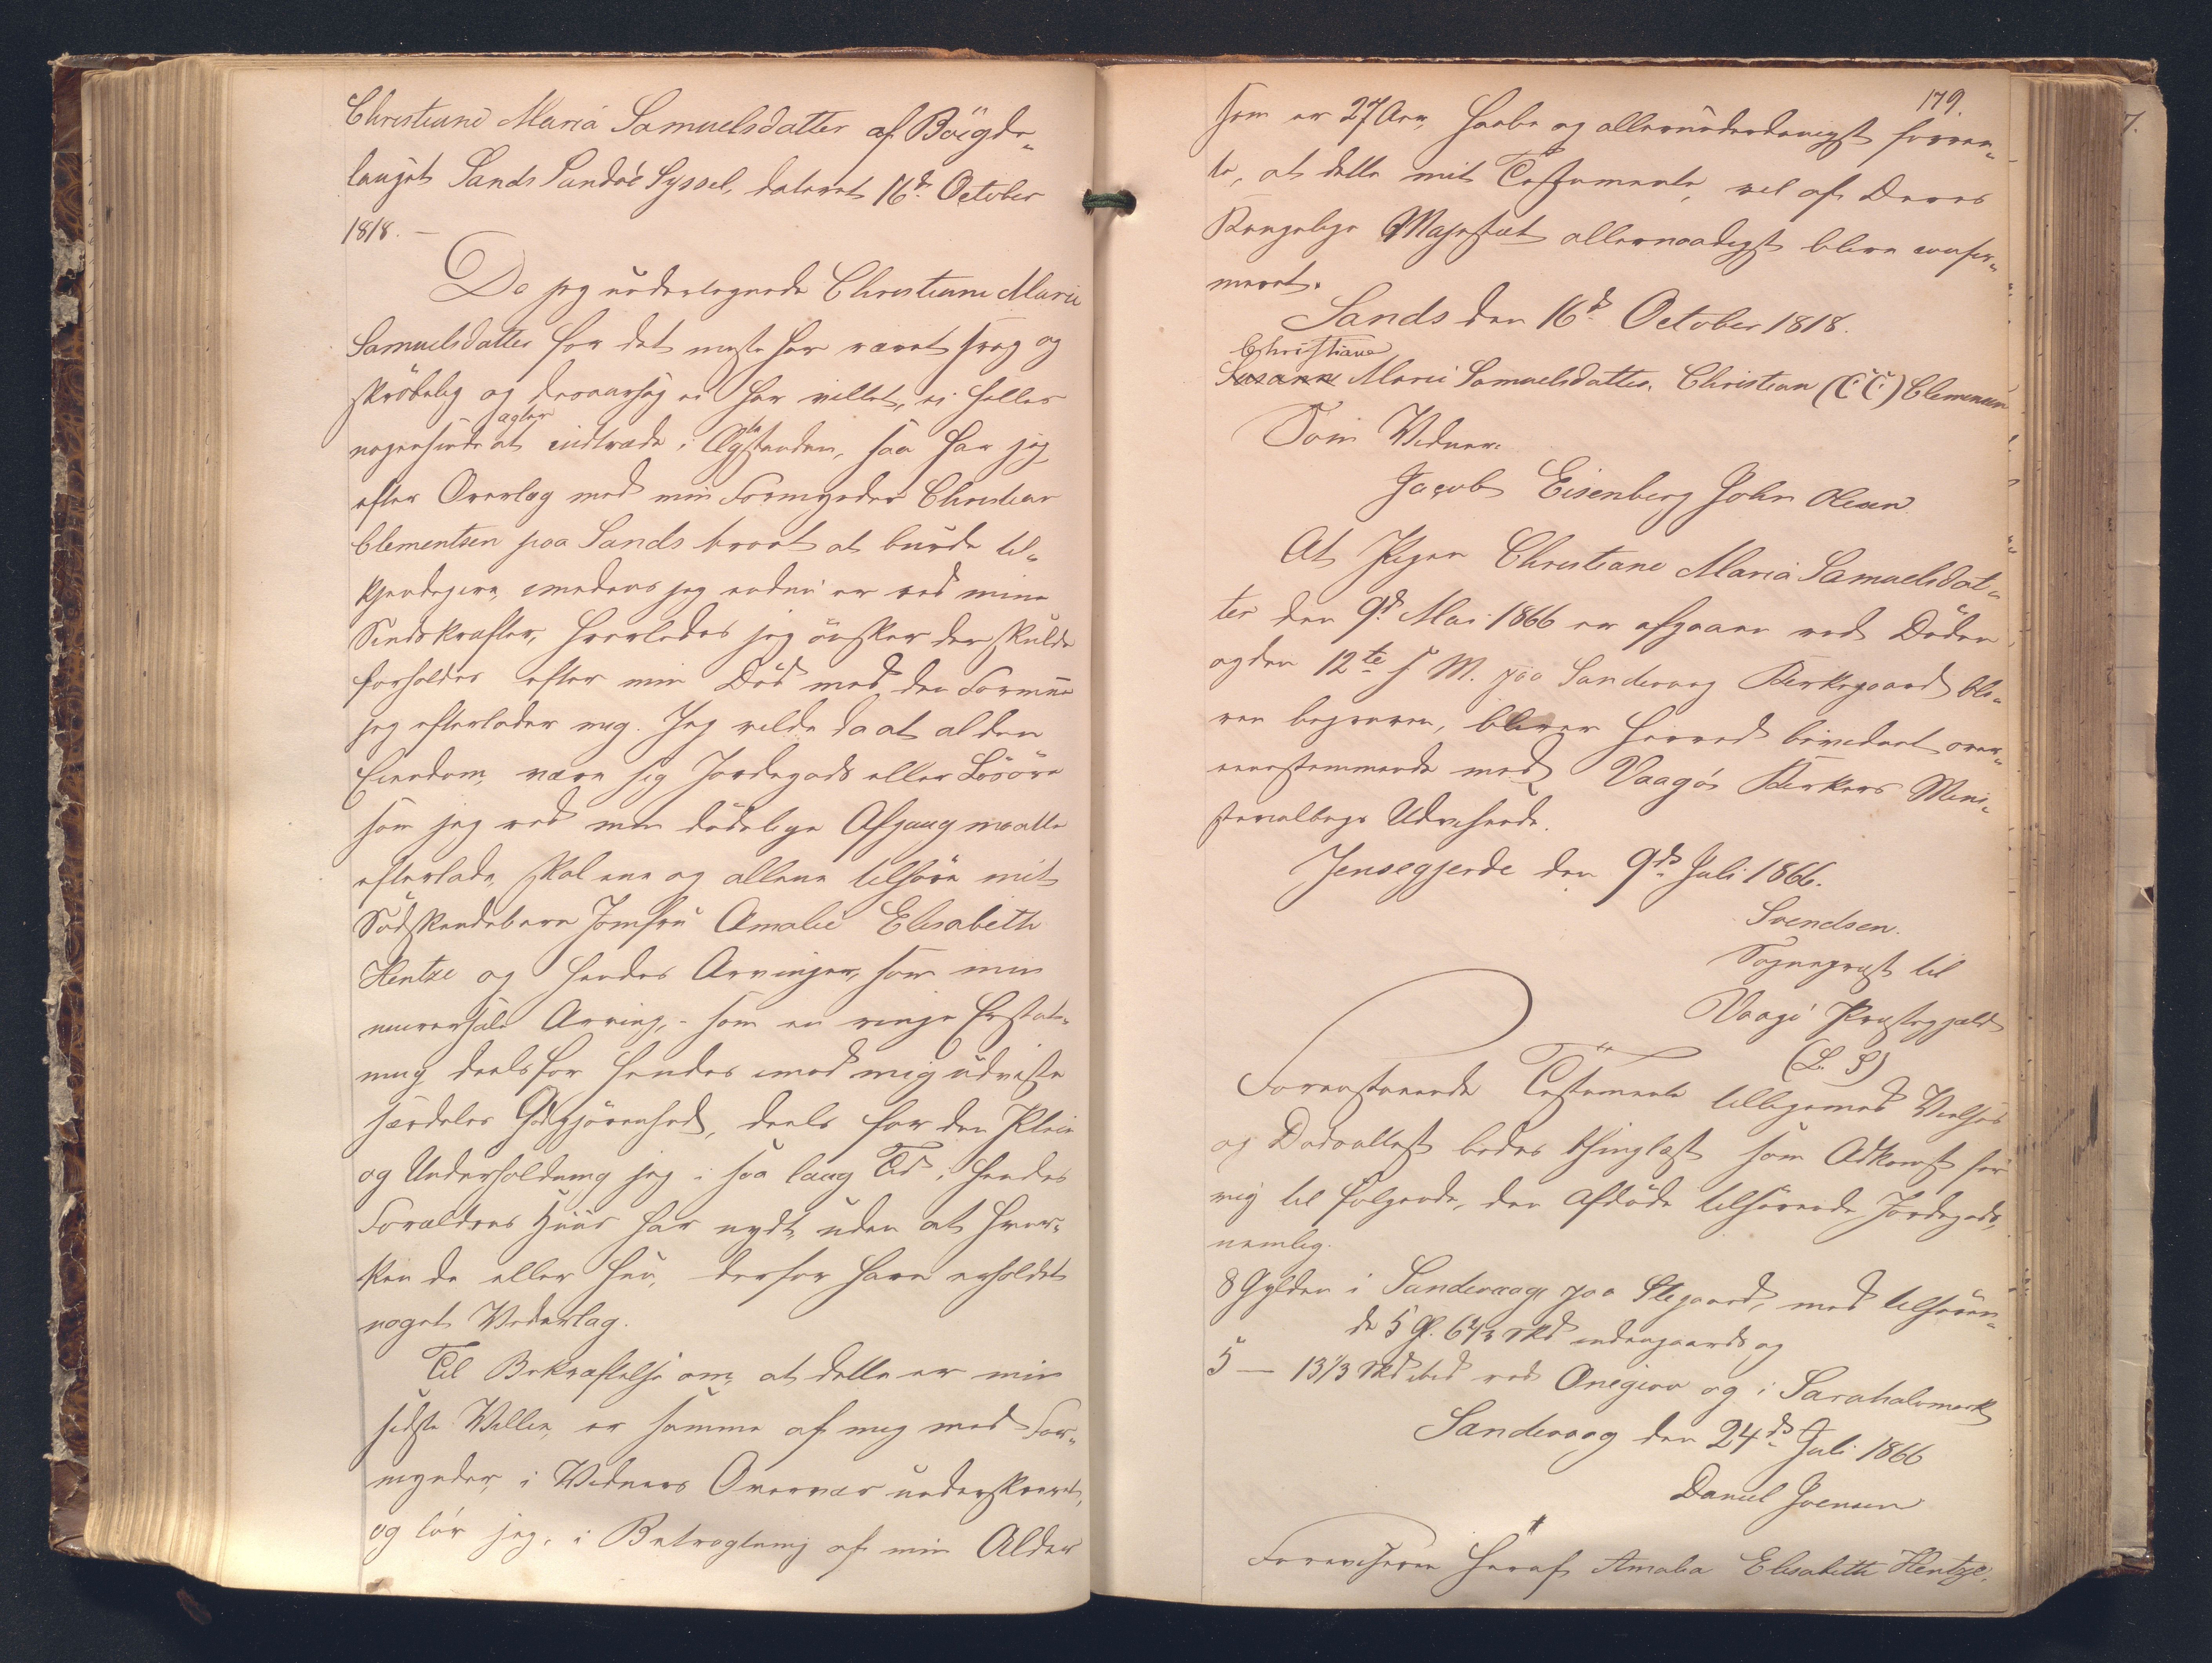 Christiane Maria Samuelsdatter af Böigde-
lauget Sands Sandöe Syssel, dateret 16de October
1818. —
Da jeg undertegnede Christiane Marie
Samuelsdatter for det meste har været svag og
skröbelig og desaarsag ei har villet, ei heller
agter
nogensinde at indtræde i Ægtestanden, saa har jeg,
efter Overlæg med min Formynder Christian
Clementsen paa Sands troet at burde til-
kjendegive, imedens jeg endnu er ved mine
Sindskrafter, hvorledes jeg önsker der skulde
forholdes efter min Död med den Formue
jeg efterlader mig. Jeg vilde da at al den
Eiendom, være sig Jordegods eller Lösöre
som jeg ved min dödelige Afgang maatte
efterlade, skal ene og allene tilhöre mit
Södskendebarn Jomfru Amalie Elisabeth
Hentze og hendes Arvinger, som min
universale Arving, - som en ringe Erstat-
ning deels for hendes imod mig udviste
særdeles Godgjörenhed, deels for den Pleie
og Underholdning jeg i saa lang Tid i hendes
Forældres Huus har nydt, uden at hver-
ken de eller hun, derfor have erholdet
noget Vederlag.
Til Bekræftelse om, at dette er min
sidste Villie, er samme af mig med For-
mynder, i Vidners Overvær underskrevet,
og tör jeg, i Betragtning af min Alder
179.
som er 27 Aar, haabe og allerunderdanigst forven-
te, at dette mit Testamente, vil af Deres
Kongelige Majestæt allernaadigst blive confir-
meret.
Sands den 16de October 1818.
Christiane
Susanne Marie Samuelsdatter. Christian (C.C.) Clementsen
Som Vidner:
Jacob Eisenberg John Olesen
At Pigen Christiane Maria Samuelsdat-
ter den 9de Mai 1866 er afgaaen ved Döden
og den 12te s. M. paa Sandevaag Kirkegaard ble-
ven begraven, bliver herved bevidnet over-
eensstemmende med Vaagös Kirkers Mini-
sterialbogs Udvisende.
Jensegjerde den 9de Juli 1866.
Svendsen.
Sognepræst til
Vaagö Præstegjeld
(L. S)
Foranstaaende Testamente tilligemed Vielses
og Dödsattest bedes thinglæst som Adkomst for
mig til fölgende, den Afdöde tilhörende, Jordegods,
nemlig.
8 Gylden i Sandevaag paa Stegaard, med tilhören-
de 5 Gl. 6 2/3 Skd indengaards og
5 — 13 1/3 Skd ibid ved Onegiov og i Sarahalsmark
Sandevaag den 24de Juli 1866
Daniel Joensen
Foreviseren heraf Amalia Elisabeth Hentze,